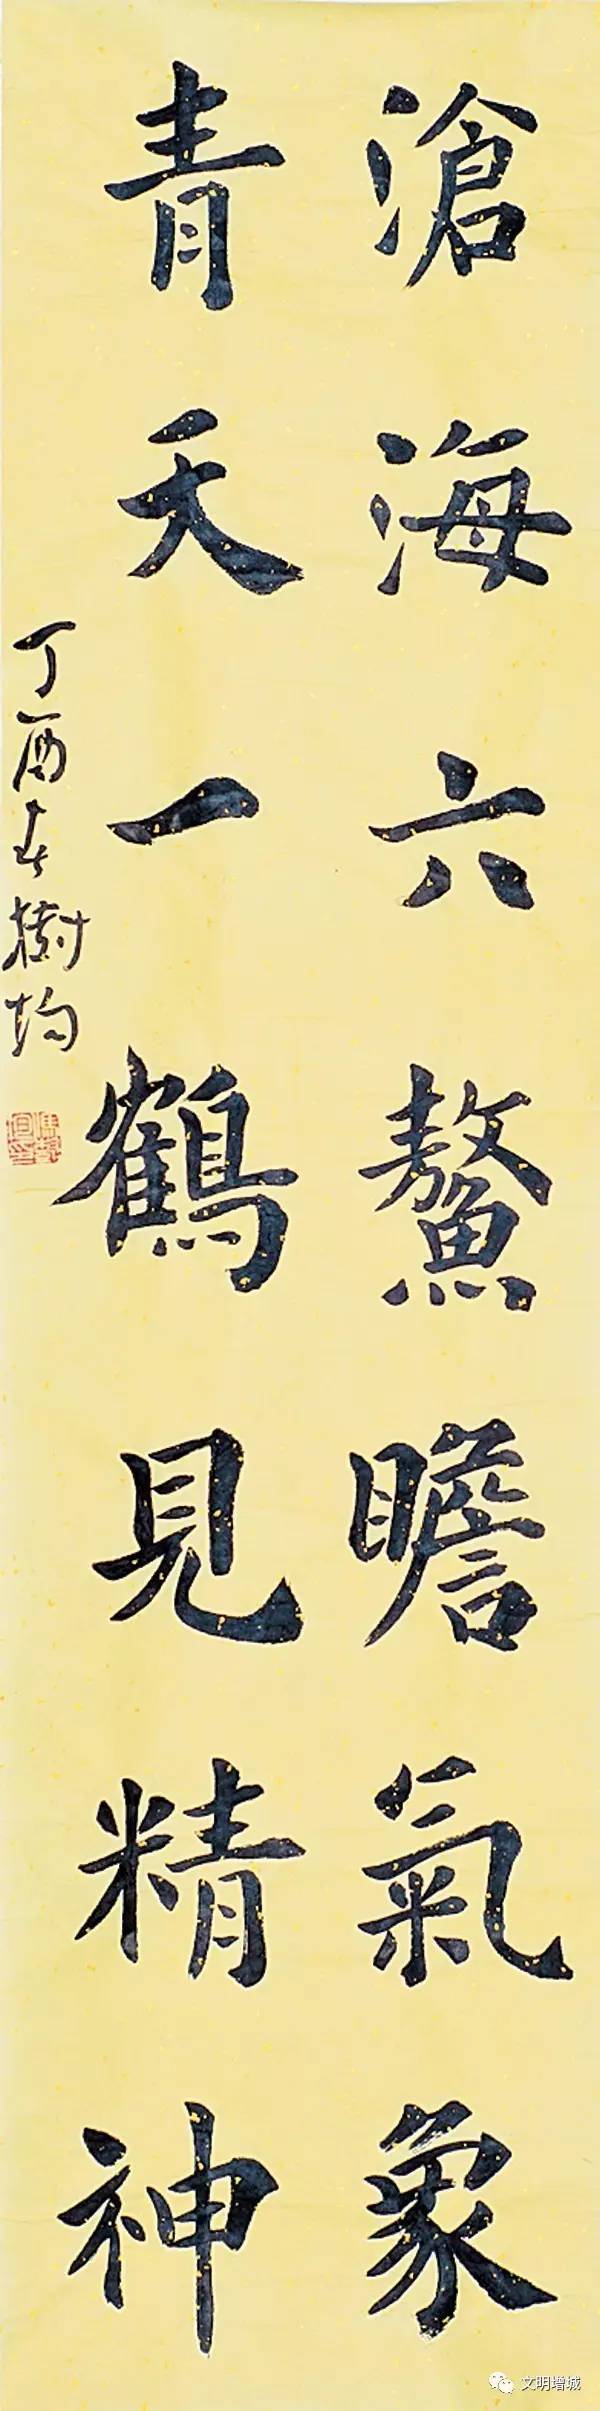 滄海六鰲瞻氣象
青天一鶴見精神
丁酉春樹均
文明增城